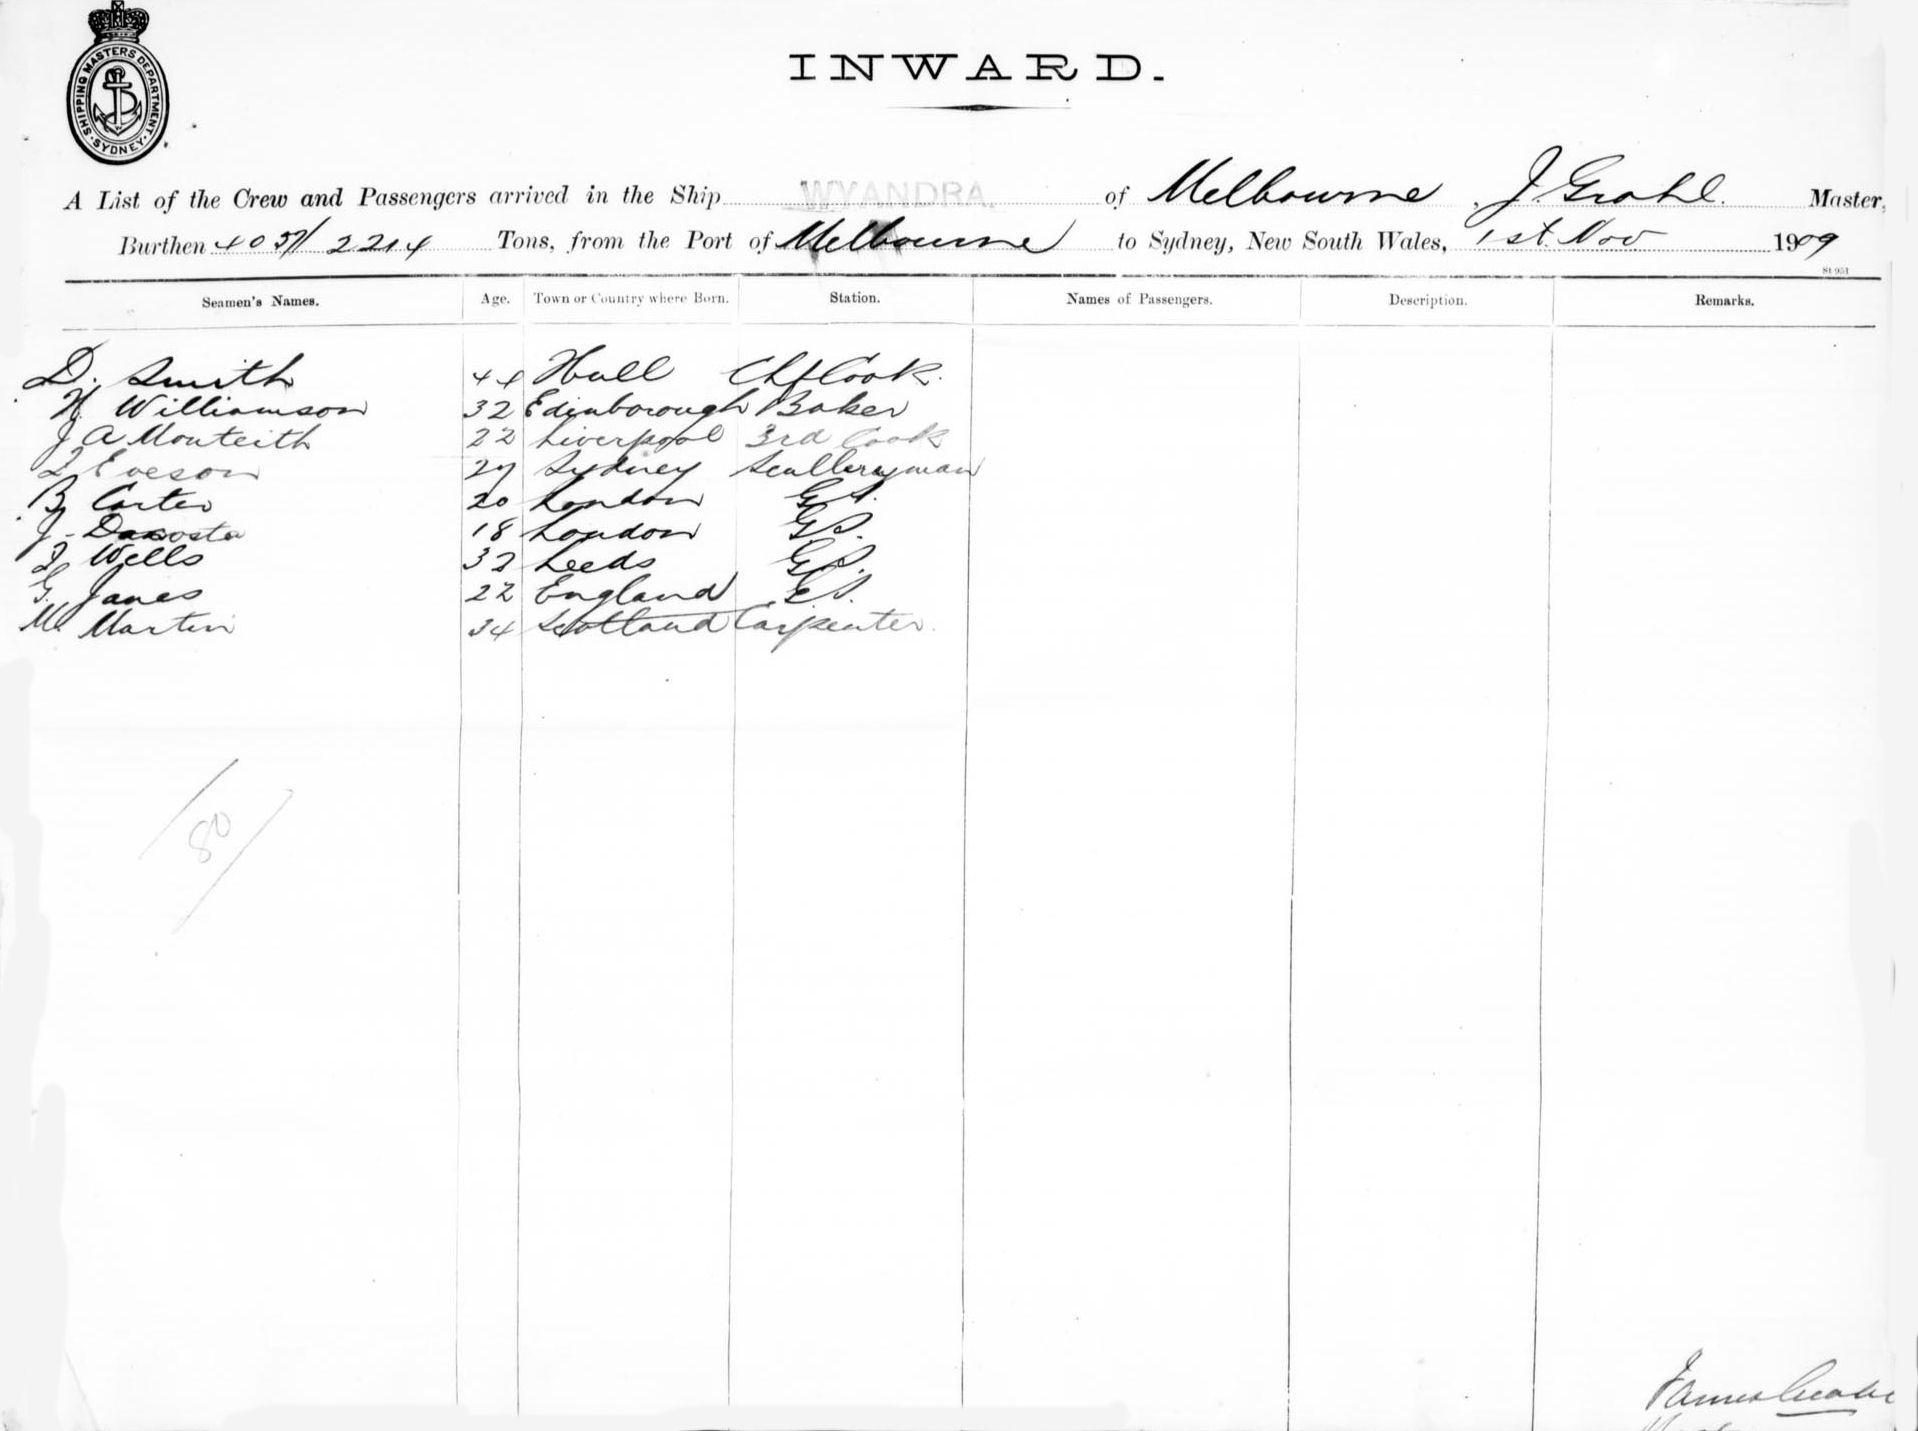 SHIPPING MASTERS DEPARTMENT · SYDNEY ·
INWARD.
A List of the Crew and Passengers arrived in the Ship WYANDRA. of Melbourne, J. Grahl. Master,
Burthen 4057/2214 Tons, from the Port of Melbourne to Sydney, New South Wales, 1st. Nov 1909
Seamen's Names. Age. Town or Country where Born. Station. Names of Passengers. Description. Remarks.
D. Smith 44 Hull Chf Cook.
H. Williamson 32 Edinborough Baker
J A Monteith 22 Liverpool 3rd Cook
Eveson 27 Sydney Sculleryman
B Carter 20 London G.S.
J. Dacosta 18 London G.S.
Wells 32 Leeds G.S.
G. Janes 22 England G.S.
M. Martin 34 Scotland Carpenter.
80
James